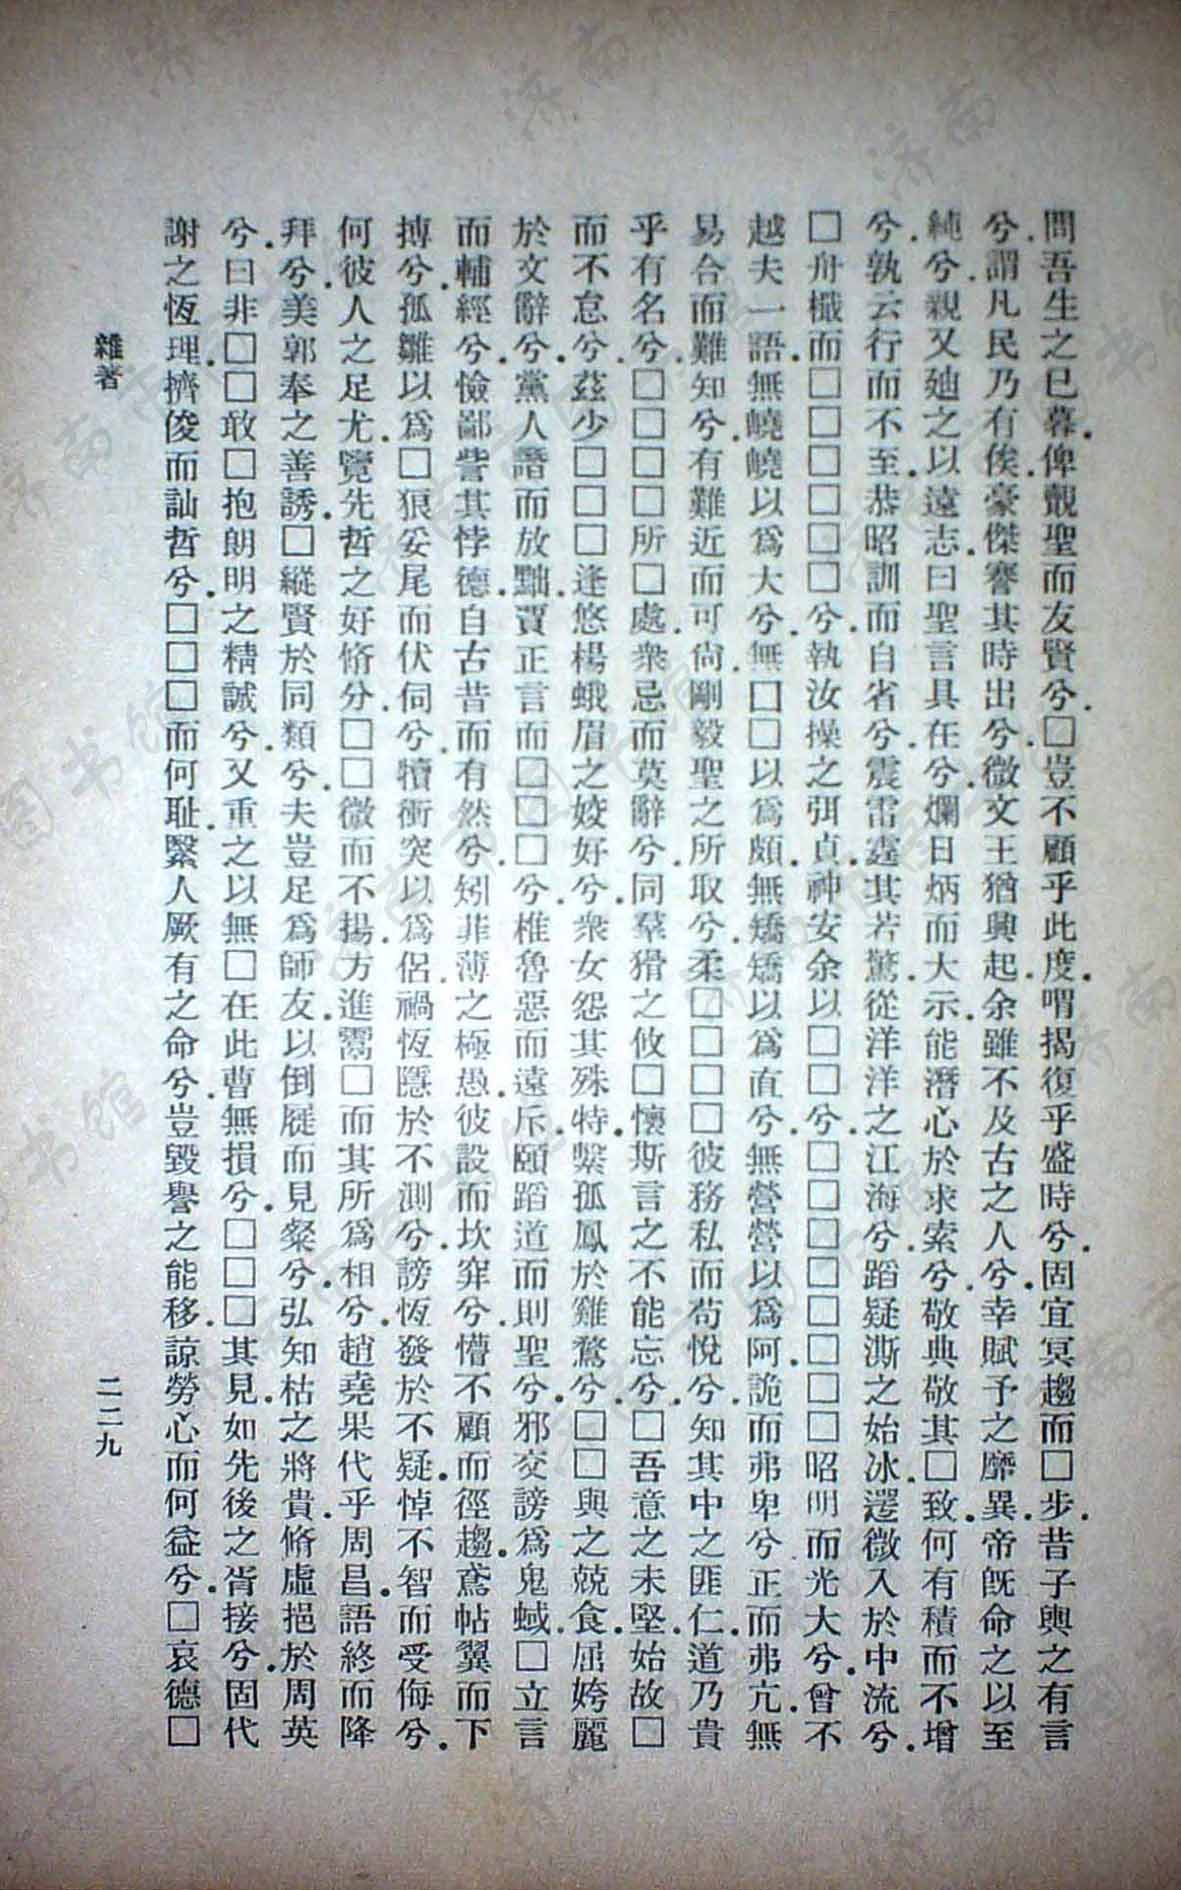 間吾生之已暮．俾覿聖而友賢兮．□豈不顧乎此度．喟揭復乎盛時兮．固宜冥趨而□步．昔子輿之有言
兮．謂凡民乃有俟．豪傑騫其時出兮．微文王猶興起．余雖不及古之人兮．幸賦予之靡異．帝既命之以至
純兮．親又廸之以遠志．曰聖言具在兮．爛日炳而大示．能潛心於求索兮．敬典敬其□致．何有積而不增
兮．孰云行而不至．恭昭訓而自省兮．震雷霆其若驚．從洋洋之江海兮．蹈疑澌之始冰．遝微入於中流兮．
□舟檝而□□□□□□兮．執汝操之弭貞．神安余以□□兮．□□□□□□□昭明而光大兮．曾不
越夫一語．無嶢嶢以為大兮．無□□以為頗．無矯矯以為直兮．無營營以為阿．詭而弗卑兮．正而弗亢．無
易合而難知兮．有難近而可尙．剛毅聖之所取兮．柔□□□彼務私而苟悅兮．知其中之匪仁．道乃貴
乎有名兮．□□□□所□處．衆忌而莫辭兮．同羣猾之攸□．懷斯言之不能忘兮．□吾意之未堅．始故□
而不怠兮．茲少□□□逢．悠楊蛾眉之姣好兮．衆女怨其殊特．繄孤鳳於雞鶩兮．□□與之競食．屈姱麗
於文辭兮．黨人譖而放黜．賈正言而□□□兮．椎魯惡而遠斥．頤蹈道而則聖兮．邪交謗爲鬼蜮．□立言
而輔經兮．憸鄙訾其悖德．自古昔而有然兮．矧菲薄之極愚．彼設而坎穽兮．懵不顧而徑趨．鳶帖翼而下
搏兮．孤雛以爲□．狼妥尾而伏伺兮．犢衝突以爲侶．禍恆隱於不測兮．謗恆發於不疑．悼不智而受侮兮．
何彼人之足尤．覽先哲之好脩兮．□□微而不揚．方進鬻□而其所爲相兮．趙堯果代乎周昌．語終而降
拜兮．美郭奉之善誘．□縱賢於同類兮．夫豈足爲師友．以倒屣而見粲兮．弘知枯之將貴．脩虛挹於周英
兮．曰非□□敢□．抱朗明之精誠兮．又重之以無□．在此曹無損兮．□□□其見．如先後之胥接兮．固代
謝之恆理．擠俊而訕哲兮．□□□而何耻．繄人厥有之命兮．豈毀譽之能移．諒勞心而何益兮．□哀德□
雜著
二二九